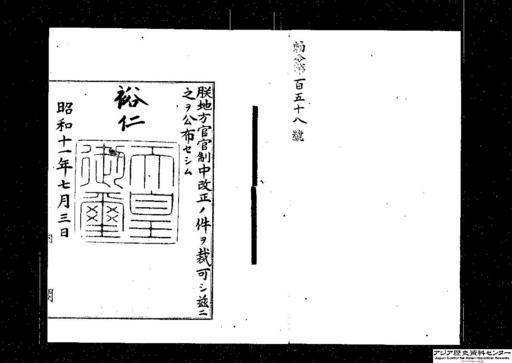 勅令第百五十八號
朕地方官官制中改正ノ件ヲ裁可シ茲ニ
之ヲ公布セシム
裕仁
天皇
御璽
昭和十一年七月三日
アジア歴史資料センター
Japan Center for Asian Historical Records